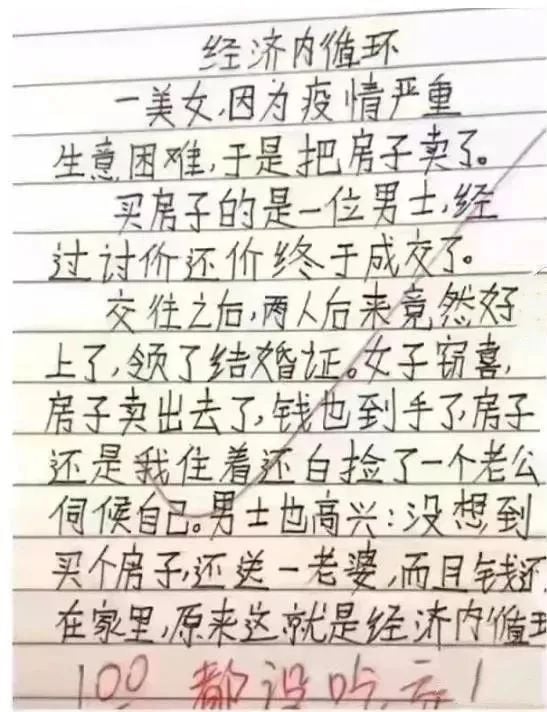 经济内循环
一美女,因为疫情严重
生意困难,于是把房子卖了。
买房子的是一位男士,经
过讨价还价终于成交了。
交往之后,两人后来竟然好
上了,领了结婚证。女子窃喜,
房子卖出去了,钱也到手了,房子
还是我住着还白捡了一个老公
伺候自己。男士也高兴:没想到
买个房子,还送一老婆,而且钱还
在家里,原来这就是经济内循环
100 都没吃亏!